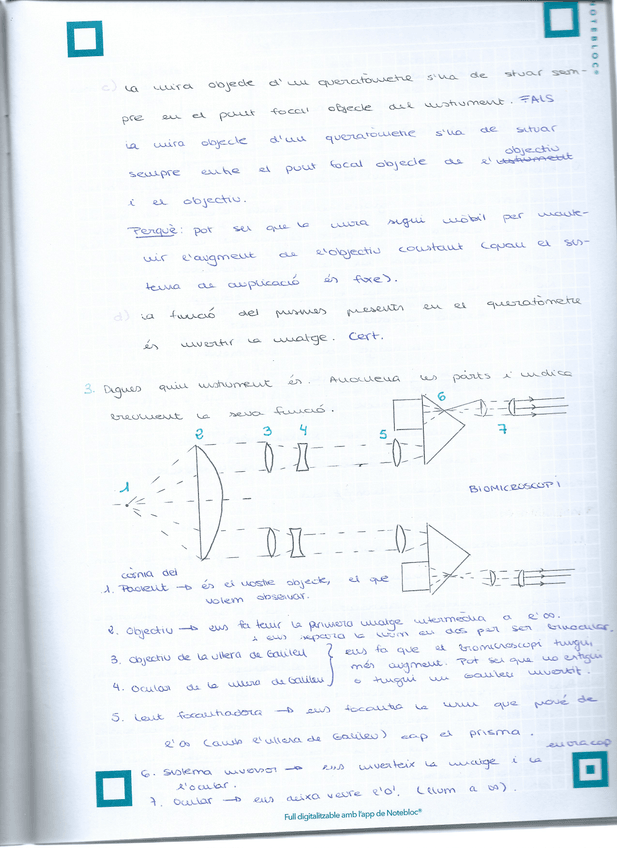 NOTEBLOC®
c) la mira objecte d'un queratòmetre s'ha de situar sem-
pre en el punt focal objecte del instrument. FALS
la mira objecte d'un queratòmetre s'ha de situar
sempre entre el punt focal objecte de l'instrument objectiu
i el objectiu.
Perquè: pot ser que la mira sigui mòbil per mante-
nir l'augment de l'objectiu constant (quan el sis-
tema de duplicació és fixe).
d) la funció del prismes presents en el queratòmetre
és invertir la imatge. Cert.
3. Digues quin instrument és. Anomena les parts i indica
breument la seva funció.
1 2 3 4 5 6 7
BIOMICROSCOPI
còrnia del
1. Pacient → és el nostre objecte, el que
volem observar.
2. Objectiu → ens fa tenir la primera imatge intermèdia a l'∞.
i ens separa la llum en dos per ser binocular.
3. Objectiu de la ullera de Galileu } ens fa que el biomicroscopi tingui
més augment. Pot ser que no estigui
4. Ocular de la ullera de Galileu } o tingui un Galileu invertit.
5. Lent focalitzadora → ens focalitza la llum que prové de
l'∞ (amb l'ullera de Galileu) cap el prisma.
6. Sistema inversor → ens inverteix la imatge i la envia cap
l'ocular.
7. Ocular → ens deixa veure l'O'. (llum a ∞).
Full digitalitzable amb l'app de Notebloc®